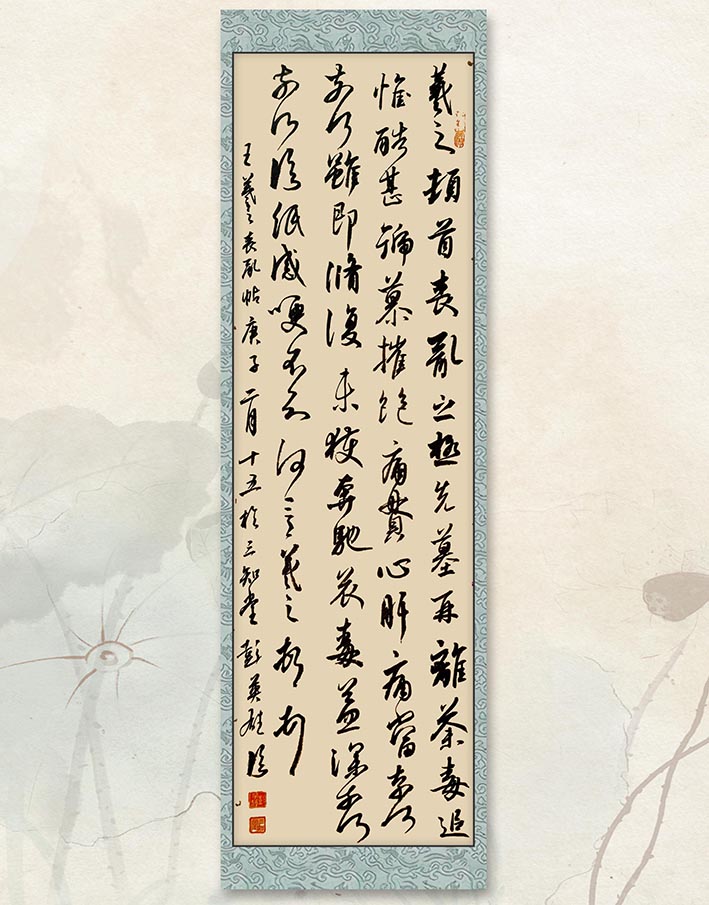 羲之頓首喪亂之極先墓再離荼毒追
惟酷甚號慕摧絕痛貫心肝痛當奈何
奈何雖即脩復未獲奔馳哀毒益深奈何
奈何臨紙感哽不知何言羲之頓首頓首
王羲之喪亂帖庚子二月十五於三知堂彭英雄臨